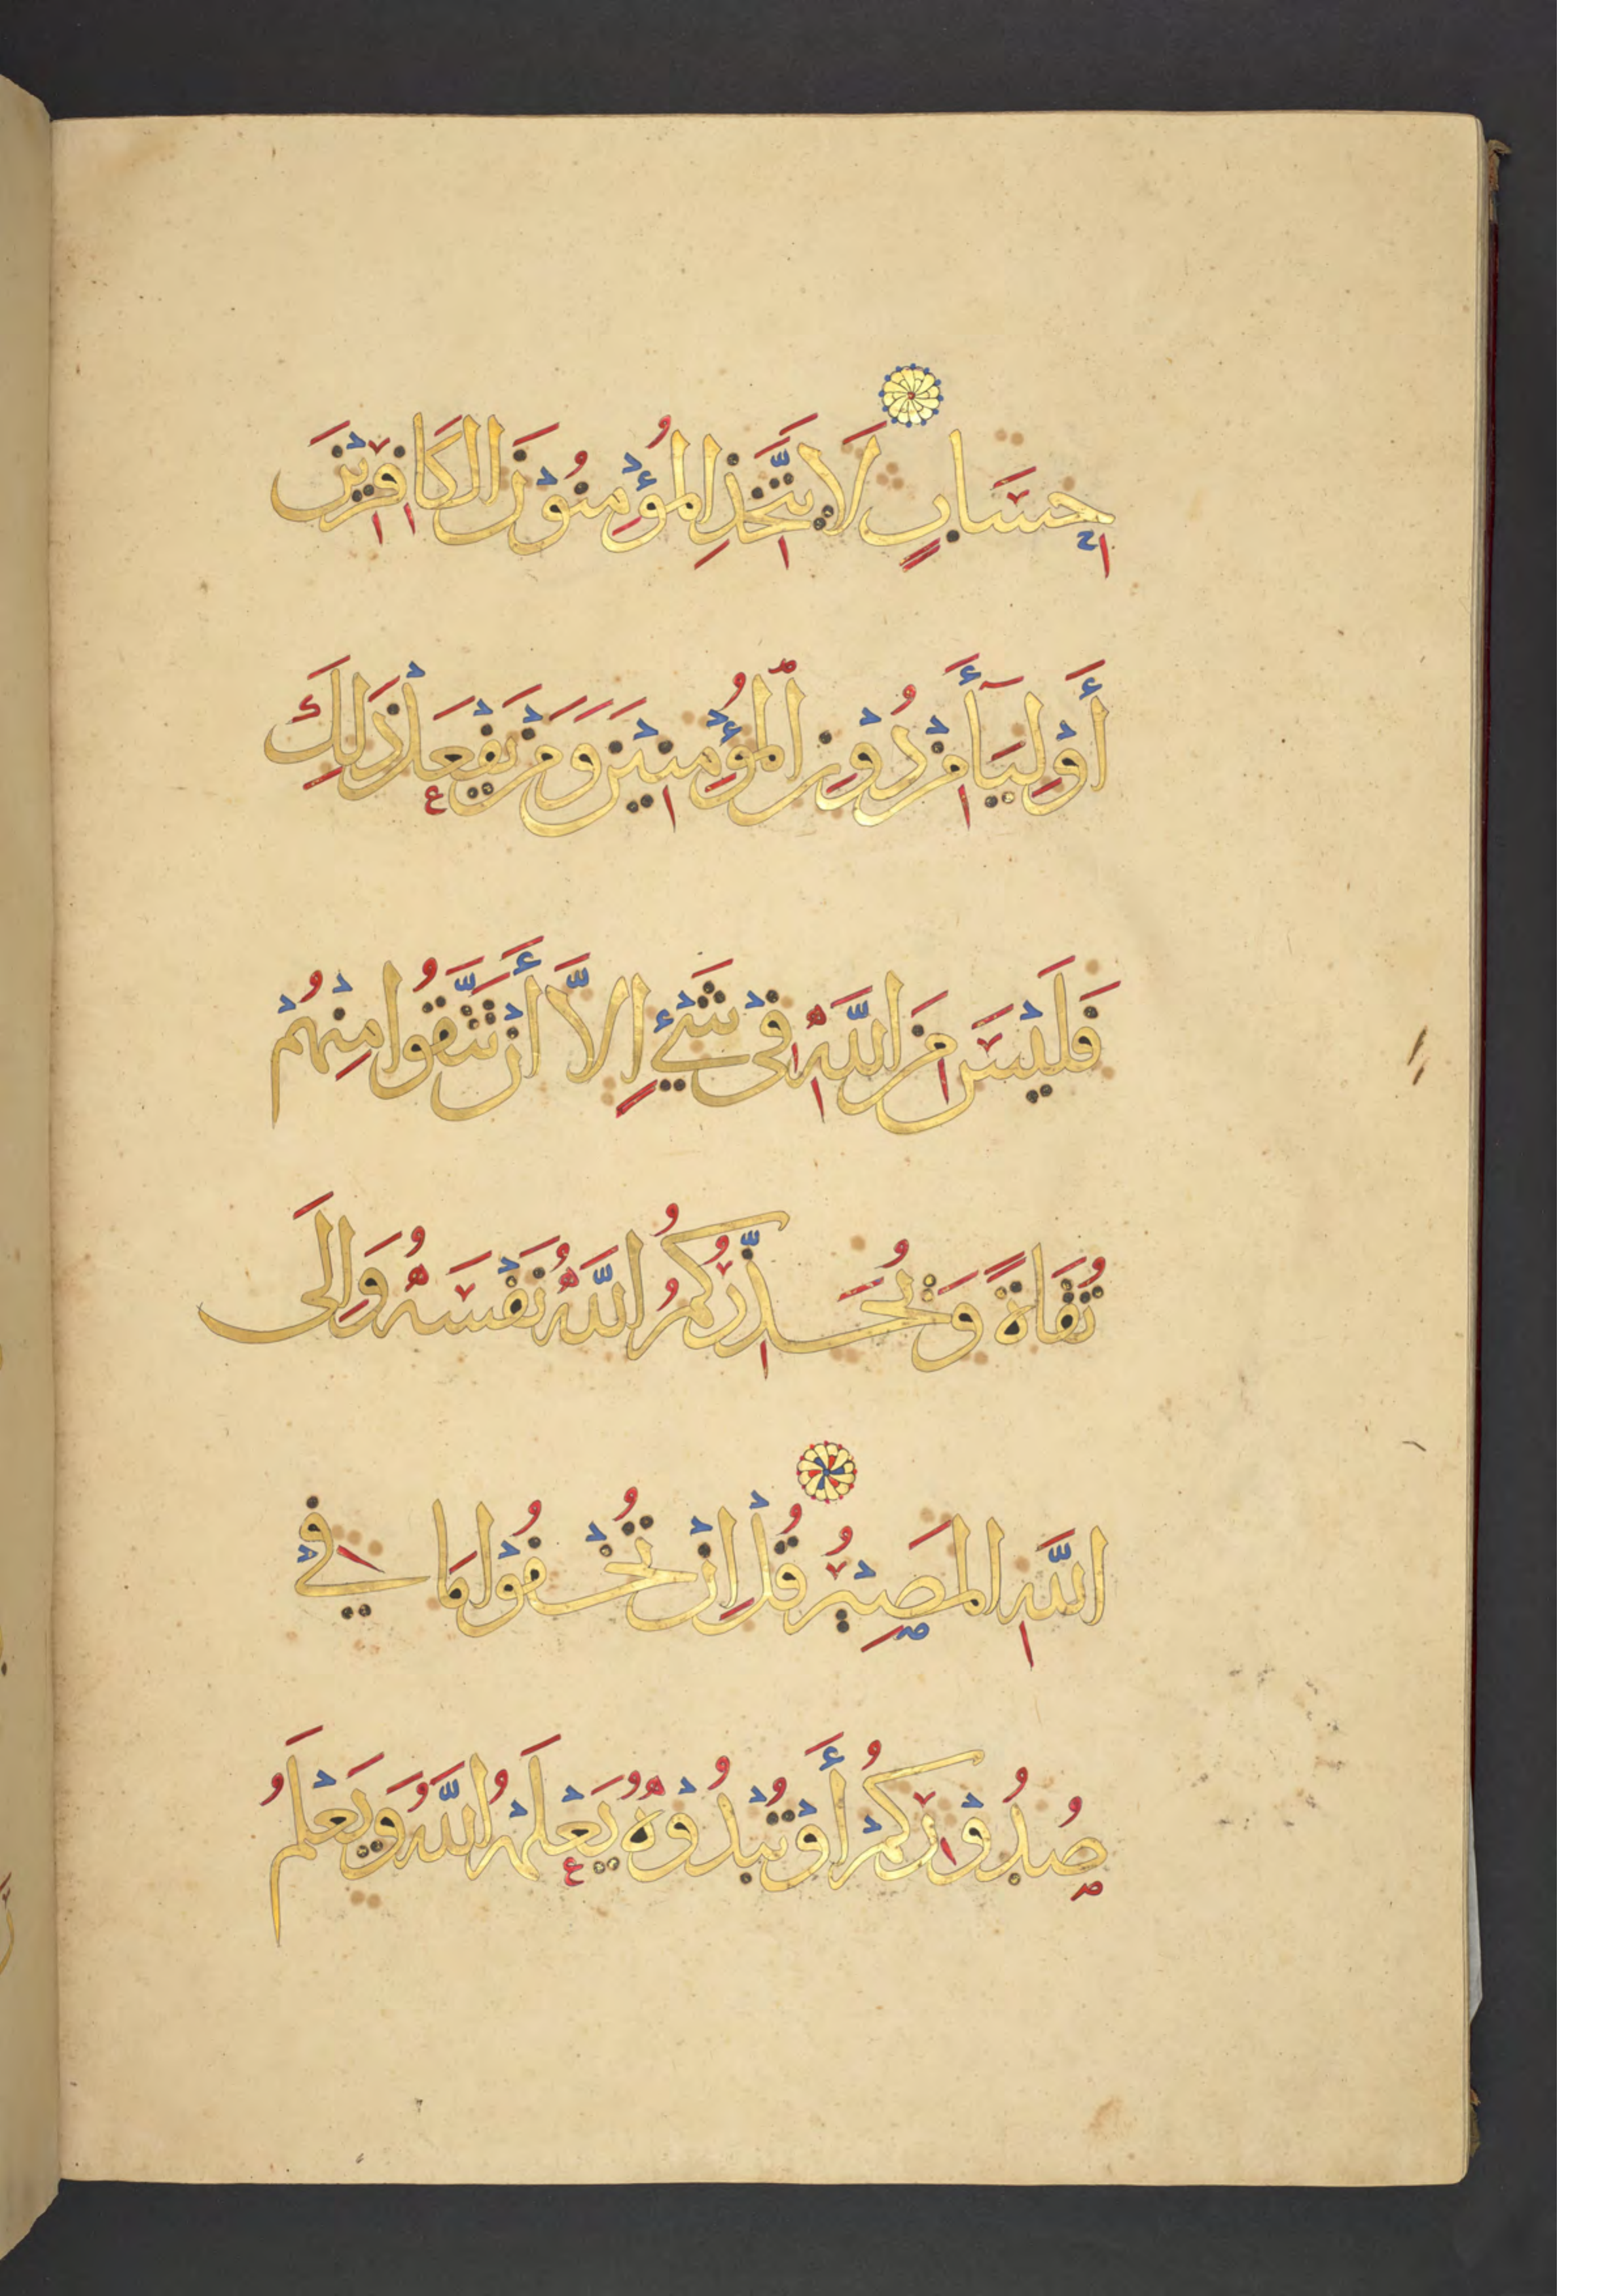 حِسَابٍ لَا يَتَّخِذِ المُؤْمِنُوْنَ الكَافِرِيْنَ
أَوْلِيَآءَ مِنْ دُوْنِ المُؤْمِنِيْنَ وَمَنْ يَفْعَلْ ذَلِكَ
فَلَيْسَ مِنَ اللَّهِ فِيْ شَيْءٍ إِلَّا أَنْ تَتَّقُوا مِنْهُمْ
تُقَاةً وَيُحَذِّرُكُمُ اللَّهُ نَفْسَهُ وَإِلَى
اللَّهِ المَصِيْرُ قُلْ إِنْ تُخْفُوْا مَا فِيْ
صُدُوْرِكُمْ أَوْ تُبْدُوْهُ يَعْلَمْهُ اللَّهُ وَيَعْلَمُ